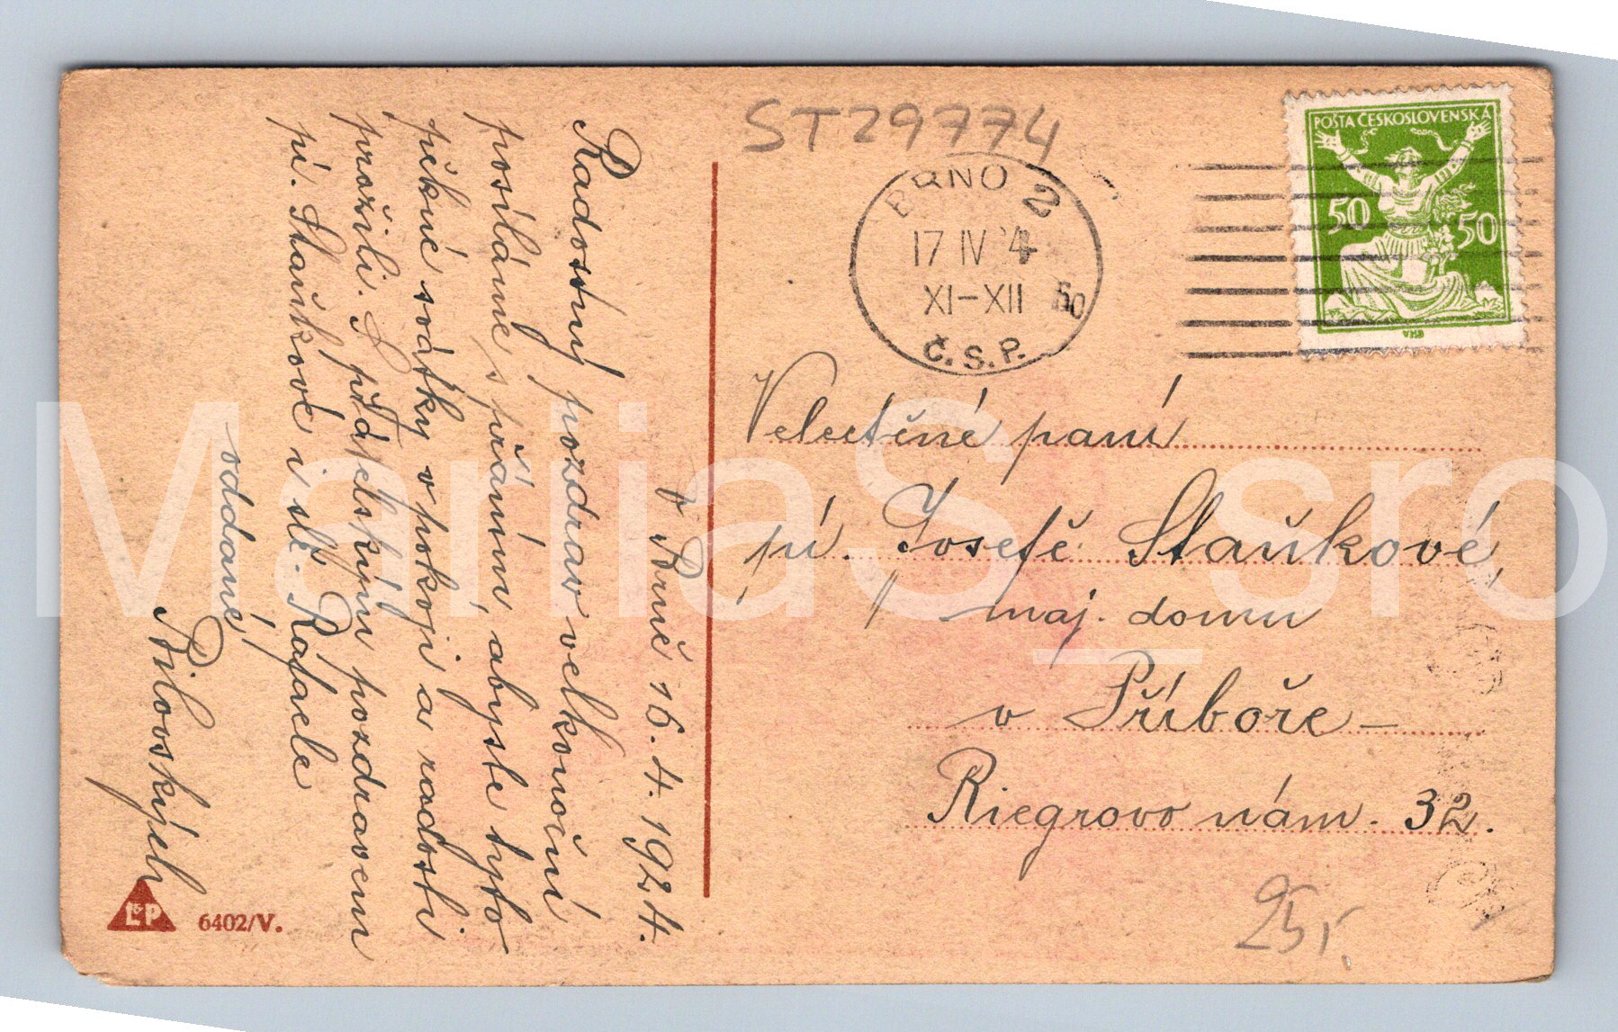 ST29774
BRNO 2
17 IV 24
XI-XII 50
Č.S.P.
POŠTA ČESKOSLOVENSKÁ
50 50
v Brně 16. 4. 1924.
Radostný pozdrav velkonoční
posíláme s přáním, abyste tyto
pěkné svátky v pokoji a radosti
prožili. S přátelským pozdravem
pí. Staňkové i sl. Rafaele
oddané
Bílovských
Velectěné paní
pí. Josefě Staňkové,
maj. domu
v Příboře –
Riegrovo nám. 32.
25,-
L&P 6402/V.
MariiaS_sro